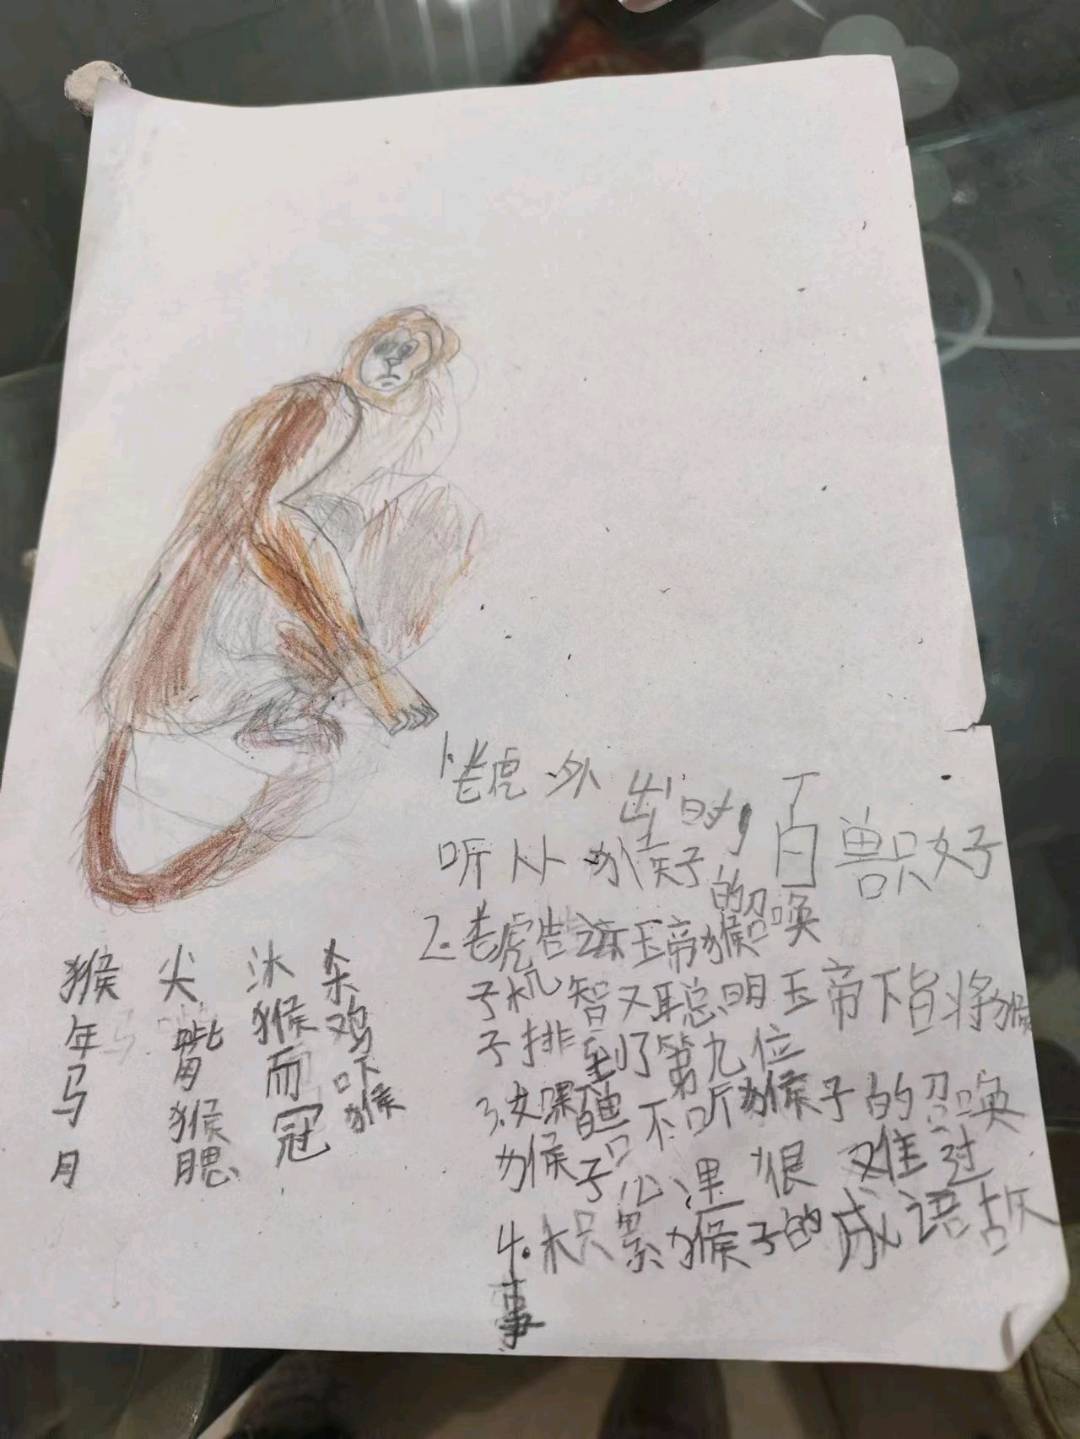 1.老虎外出时,百兽只好
听从猴子的召唤
2.老虎告诉玉帝猴
子机智又聪明玉帝下旨将猴
子排到了第九位
3.发嘿不听猴子的召唤
猴子心里很难过
4.积累猴子的成语故
事
猴年马月
尖嘴猴腮
沐猴而冠
杀鸡吓猴